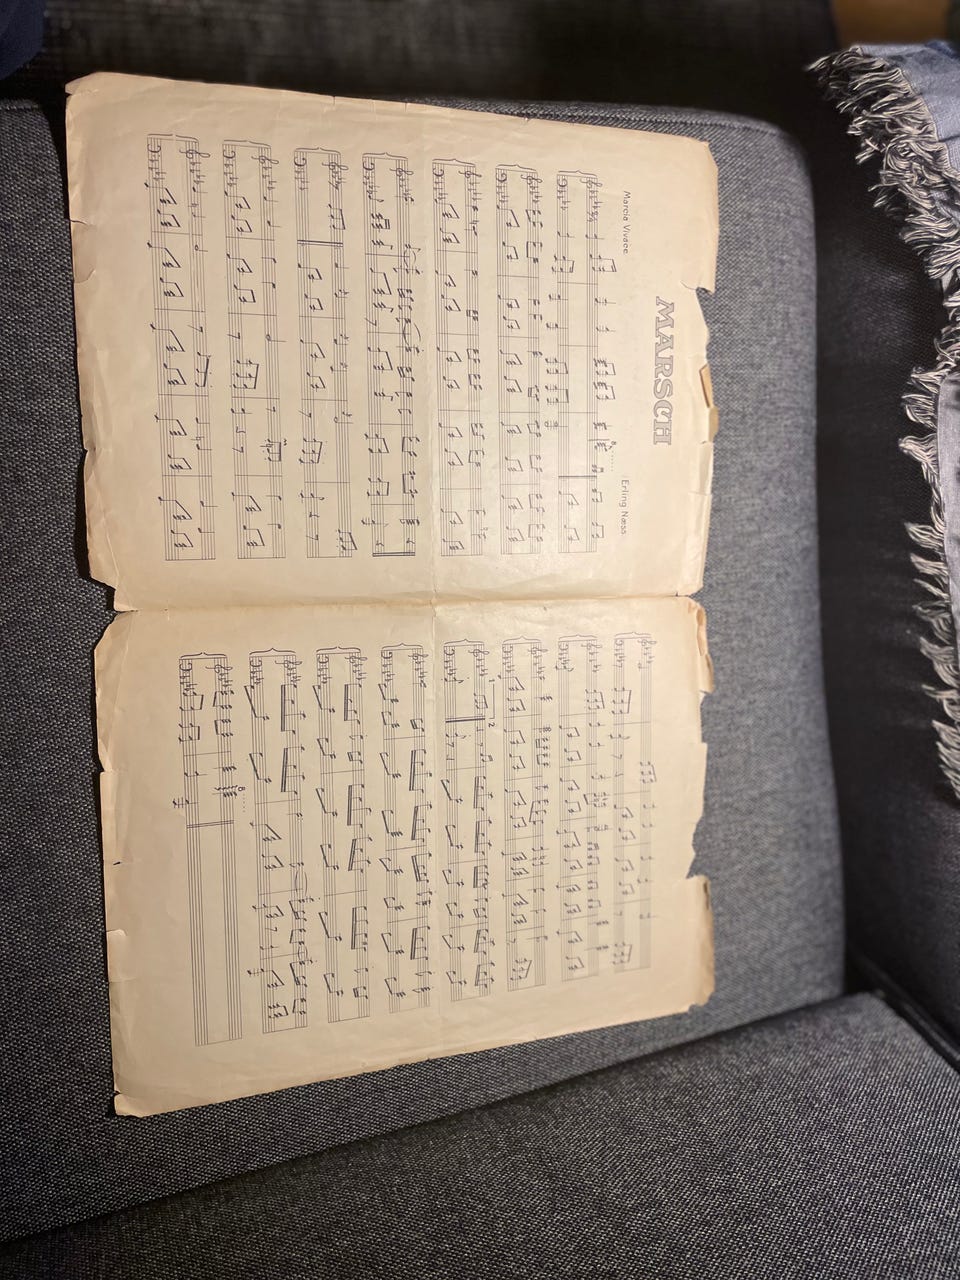 MARSCH
Marcia Vivace
Erling Næss
8......
1.
2.
8.....